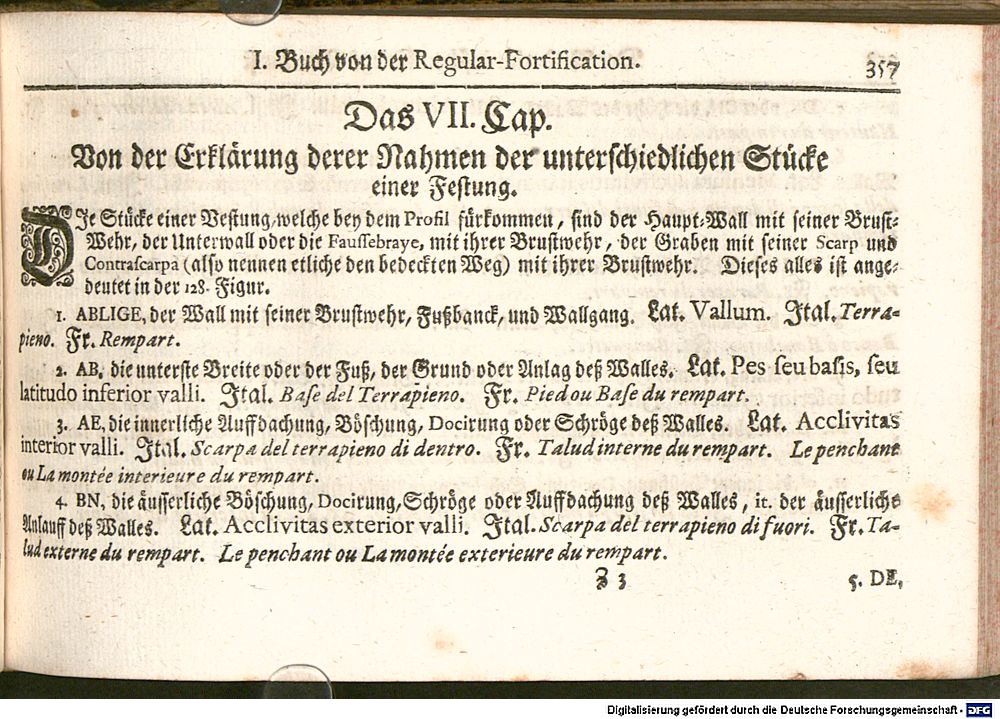 I. Buch von der Regular-Fortification. 357
Das VII. Cap.
Von der Erklärung derer Nahmen der unterschiedlichen Stücke
einer Festung.
DIe Stücke einer Vestung/welche bey dem Profil fürkommen, sind der Haupt-Wall mit seiner Brust-
Wehr, der Unterwall oder die Faussebraye, mit ihrer Brustwehr, der Graben mit seiner Scarp und
Contrascarpa (also nennen etliche den bedeckten Weg) mit ihrer Brustwehr. Dieses alles ist ange-
deutet in der 128. Figur.
1. ABLIGE, der Wall mit seiner Brustwehr, Fußbanck, und Wallgang. Lat. Vallum. Ital. Terra-
pieno. Fr. Rempart.
2. AB, die unterste Breite oder der Fuß, der Grund oder Anlag deß Walles. Lat. Pes seu basis, seu
latitudo inferior valli. Ital. Base del Terrapieno. Fr. Pied ou Base du rempart.
3. AE, die innerliche Auffdachung, Böschung, Docirung oder Schröge deß Walles. Lat. Acclivitas
interior valli. Ital. Scarpa del terrapieno di dentro. Fr. Talud interne du rempart. Le penchant
ou La montée interieure du rempart.
4. BN, die äusserliche Böschung, Docirung, Schröge oder Auffdachung deß Walles, it. der äusserliche
Anlauff deß Walles. Lat. Acclivitas exterior valli. Ital. Scarpa del terrapieno di fuori. Fr. Ta-
lud externe du rempart. Le penchant ou La montée exterieure du rempart.
Z 3 5. DE,
Digitalisierung gefördert durch die Deutsche Forschungsgemeinschaft - DFG